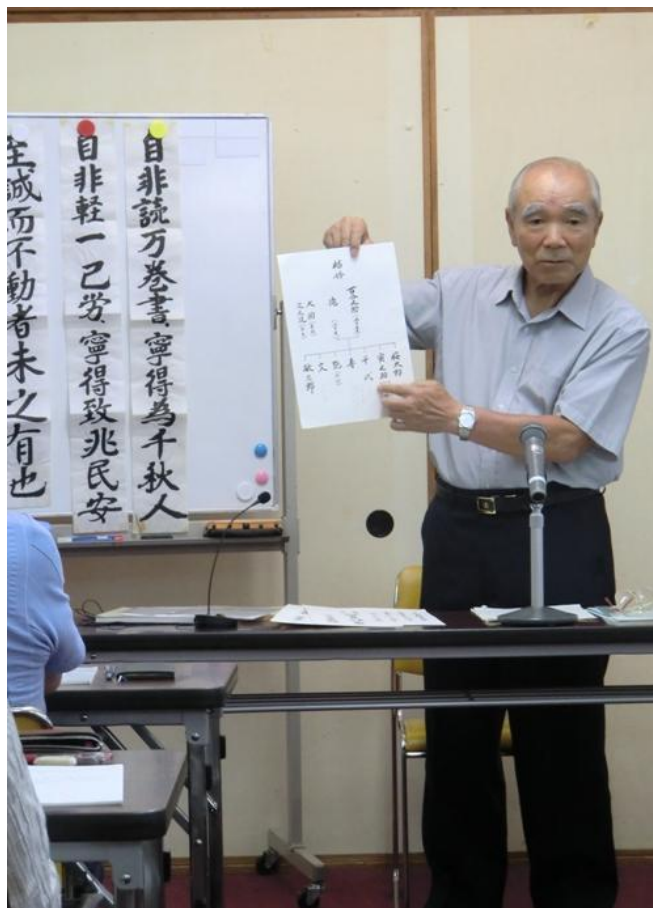 自非読万巻書、寧得為千秋人
自非軽一己労、寧得致兆民安
至誠而不動者未之有也
百合之助
滝
梅太郎
寅之助
千代
寿
艶
文
敏三郎